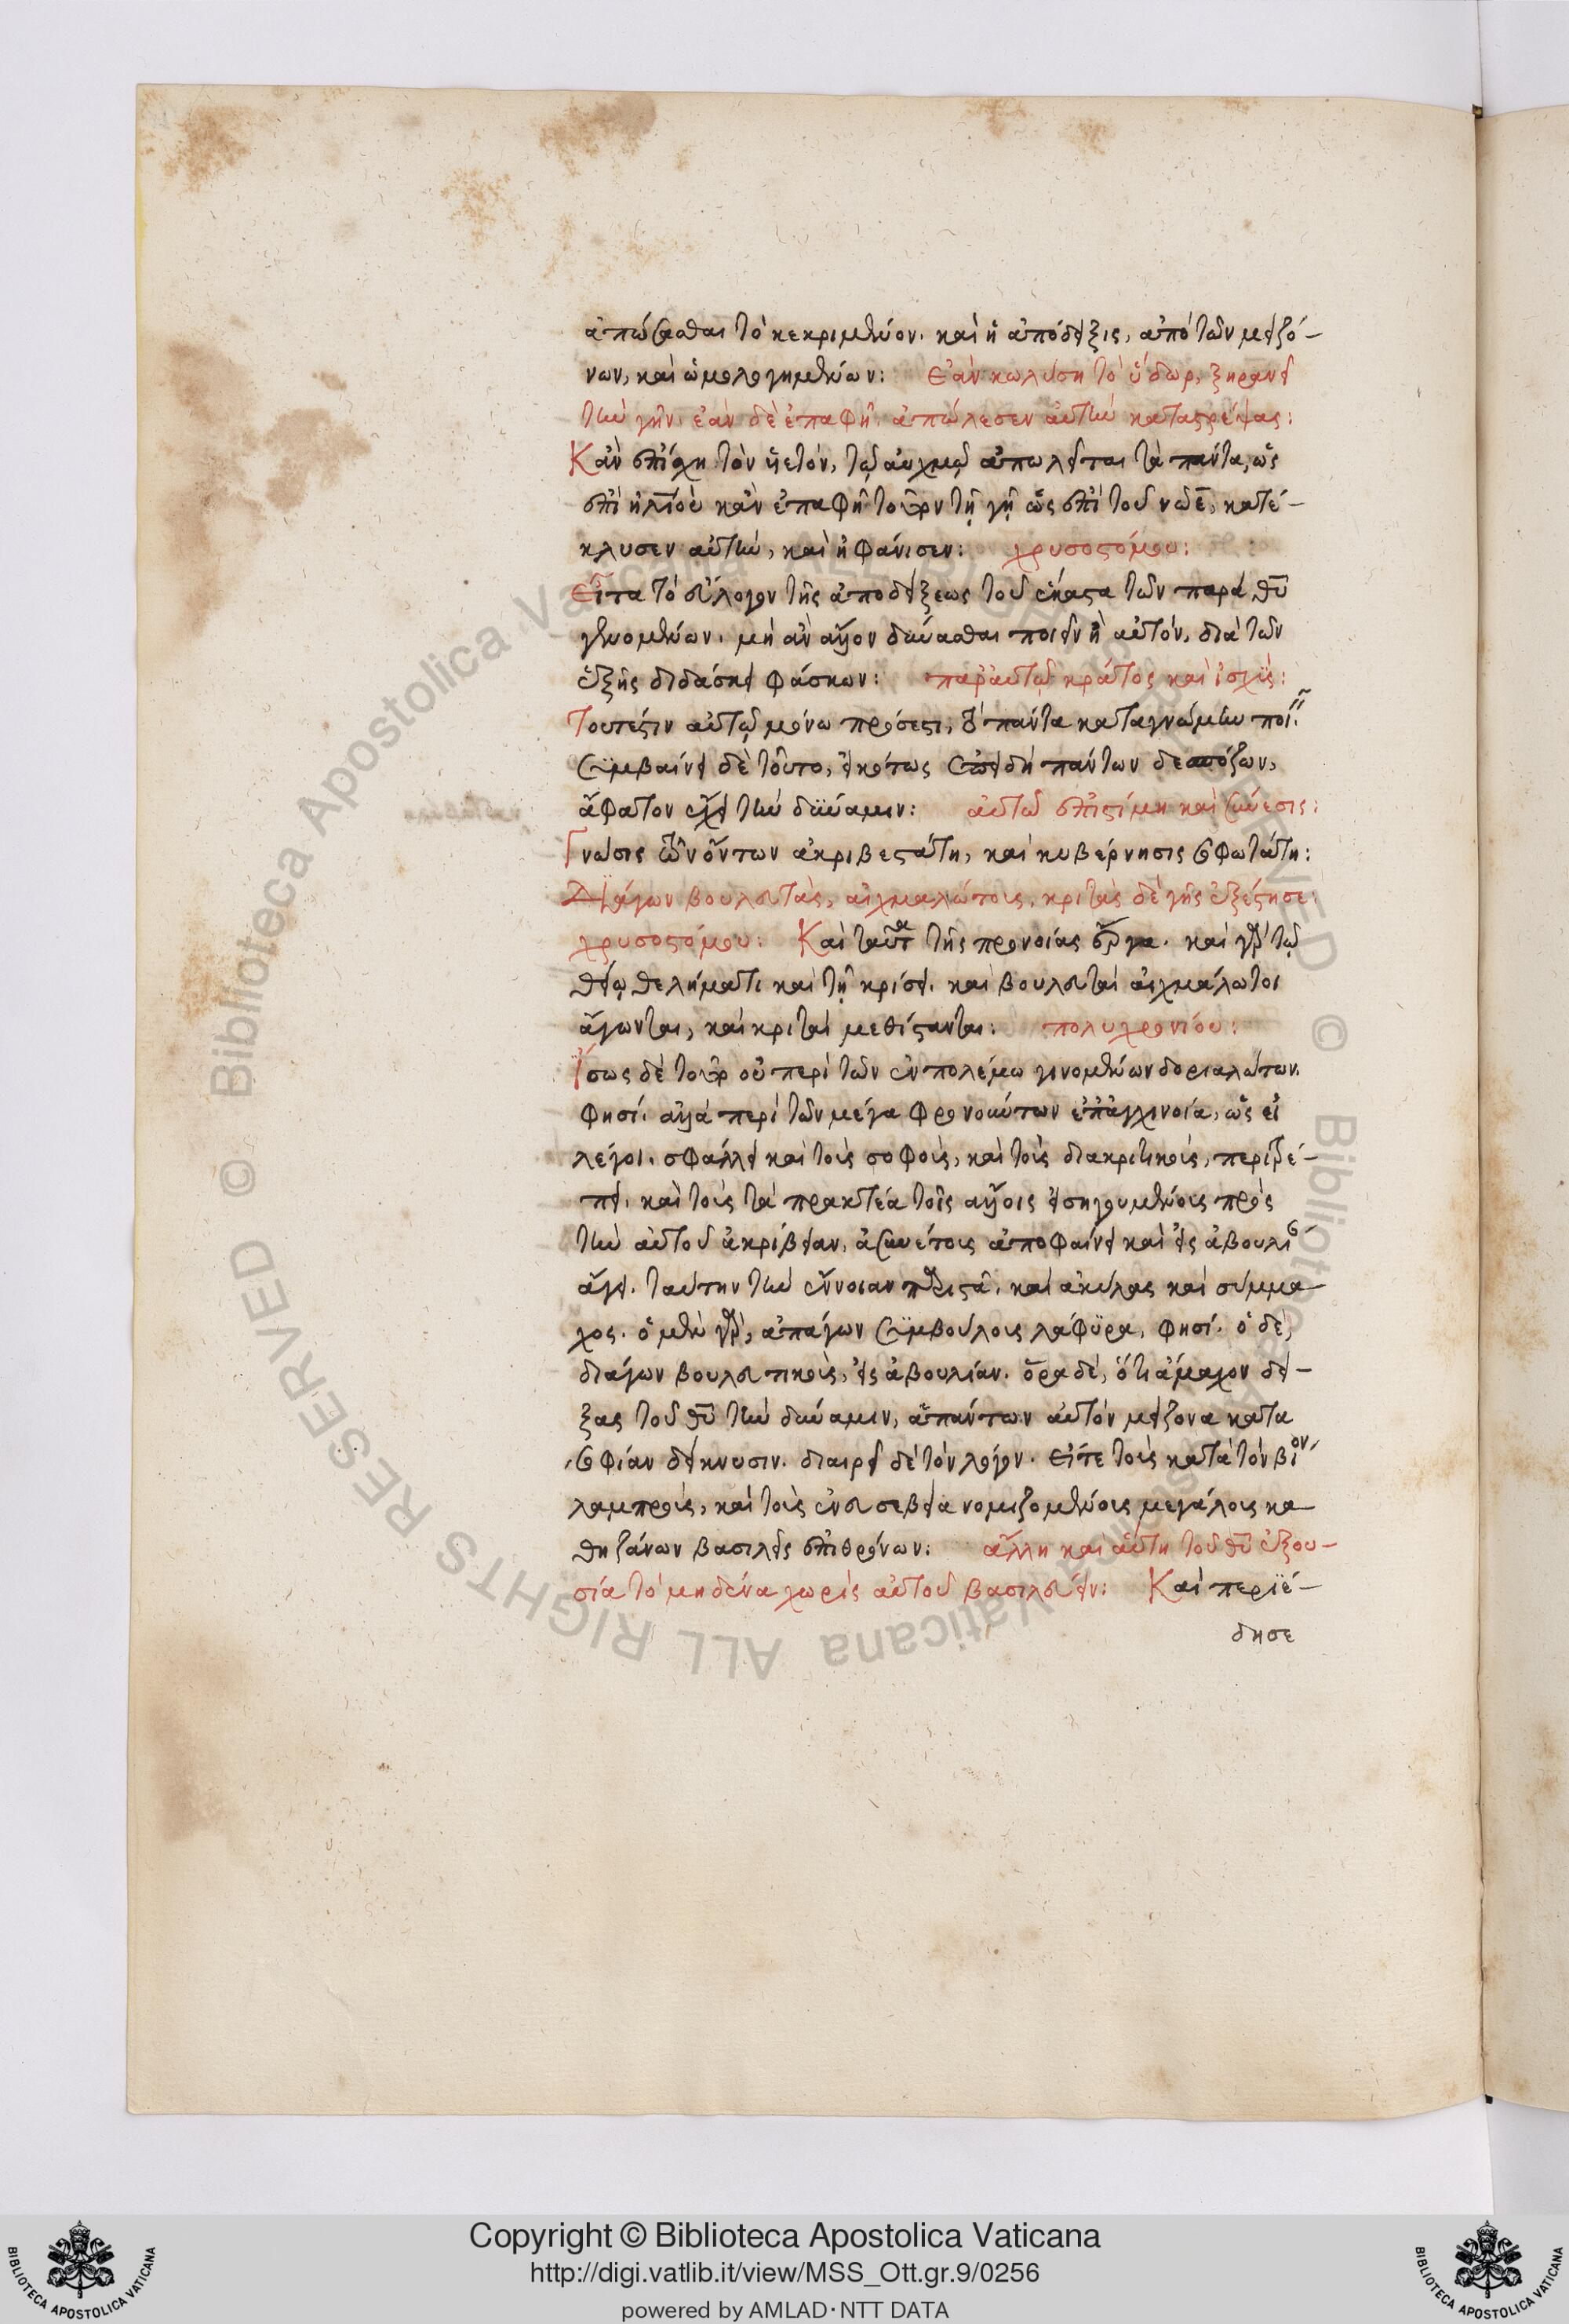 ἀπώσασθαι τὸ κεκριμένον. καὶ ἡ ἀπόδειξις, ἀπὸ τῶν μειζό-
νων, καὶ ὡμολογημένων: Ἐὰν κωλύση τὸ ὕδωρ, ξηρανεῖ
τὴν γῆν. ἐὰν δὲ ἐπαφῆ. ἀπώλεσεν αὐτὴν καταστρέψας:
Κἂν ἐπίσχη τὸν ὑετόν, τῷ αὐχμῷ ἀπωλεῖται τὰ πάντα, ὡς
ἐπὶ ἡλίου κἂν ἐπαφῆ τοῦτον τῇ γῇ ὡς ἐπὶ τοῦ νῶε, κατέ-
κλυσεν αὐτὴν, καὶ ἠφάνισεν: χρυσοστόμου:
Εἶτα τὸ εὔλογον τῆς ἀποδείξεως τοῦ ἕκαστα τῶν παρὰ θῦ
γενομένων. μὴ ἂν ἄλλον δύνασθαι ποιεῖν ἢ αὐτόν, διὰ τῶν
ἑξῆς διδάσκει φάσκων: παρ' αὐτῷ κράτος καὶ ἰσχύς:
Τουτέστιν αὐτῷ μόνω πρόσεστι, τὸ πάντα κατὰ γνώμην ποι
Συμβαίνει δὲ τοῦτο, εἰκότως ἐπειδὴ πάντων δεσπόζων,
ἄφατον ἔχει τὴν δύναμιν: αὐτῶ ἐπιστήμη καὶ σύνεσις:
Γνῶσις τῶν ὄντων ἀκριβεστάτη, καὶ κυβέρνησις σοφωτάτη:
Διάγων βουλευτὰς, αἰχμαλώτους, κριτὰς δὲ γῆς ἐξέστησε:
χρυσοστόμου: Καὶ ταῦτα τῆς προνοίας ἔργα. καὶ γὰρ τῷ
θείῳ θελήματι καὶ τῇ κρίσει. καὶ βουλευταὶ αἰχμάλωτοι
ἄγονται, καὶ κριταὶ μεθίστανται: πολυχρονίου:
Ἴσως δὲ τοῦτο οὐ περὶ τῶν ἐν πολέμω γινομένων δοριαλώτων.
φησί. ἀλλὰ περὶ τῶν μέγα φρονούντων ἐπ' ἀγχινοία, ὡς εἰ
λέγοι. σφάλλει καὶ τοὺς σοφοὺς, καὶ τοὺς διακριτικοὺς, περιτρέ-
πει. καὶ τοὺς τὰ πρακτέα τοῖς ἄλλοις εἰσηγουμένους πρὸς
τὴν αὐτοῦ ἀκρίβειαν, ἀσυνέτους ἀποφαίνει καὶ εἰς ἀβουλί
ἄγει. ταύτην τὴν ἔννοιαν παριστᾶ. καὶ ἀκύλας καὶ σύμμα-
χος. ὁ μὲν γὰρ, ἀπάγων συμβούλους λάφυρα, φησί. ὁ δὲ,
διάγων βουλευτικοὺς, εἰς ἀβουλίαν. ὅρα δὲ, ὅτι ἄμαχον δεί-
ξας τοῦ θῦ τὴν δύναμιν, ἁπάντων αὐτὸν μείζονα κατὰ
σοφίαν δείκνυσιν. διαιρεῖ δὲ τὸν λόγον. εἴτε τοὺς κατὰ τὸν βίον
λαμπροὺς, καὶ τοὺς ἐν εὐσεβεία νομιζομένους μεγάλους κα-
θιζάνων βασιλεῖς ἐπὶ θρόνων: ἄλλη καὶ αὕτη τοῦ θῦ ἐξου-
σία τὸ μηδένα χωρὶς αὐτοῦ βασιλεύειν: Καὶ περιέ-
δησε
Copyright © Biblioteca Apostolica Vaticana
http://digi.vatlib.it/view/MSS_Ott.gr.9/0256
powered by AMLAD·NTT DATA
BIBLIOTECA APOSTOLICA VATICANA
BIBLIOTECA APOSTOLICA VATICANA
© Biblioteca Apostolica Vaticana ALL RIGHTS RESERVED
© Biblioteca Apostolica Vaticana ALL RIGHTS RESERVED